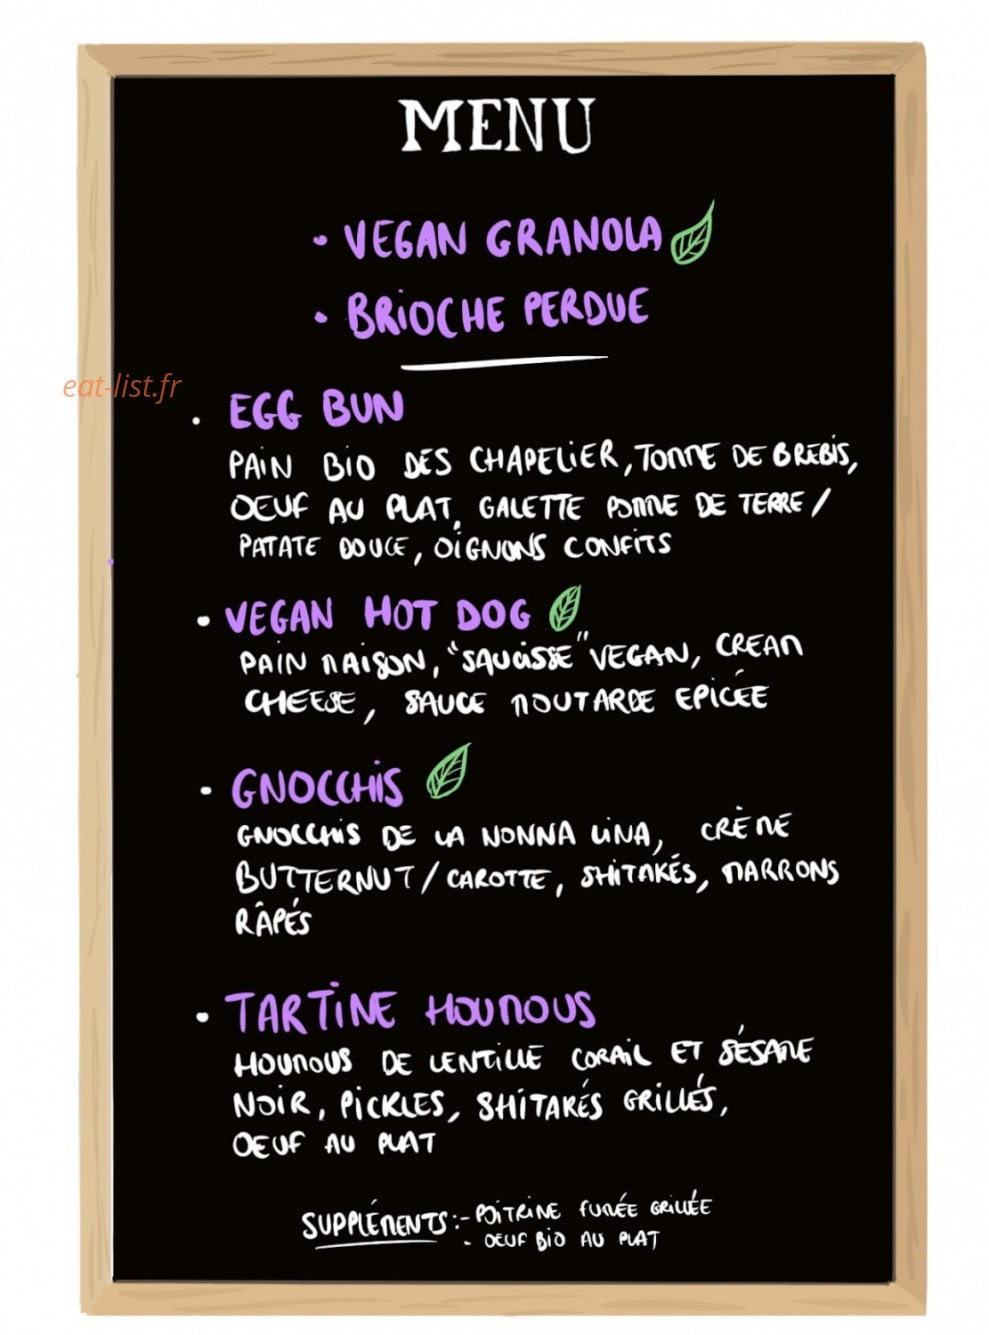 MENU
• VEGAN GRANOLA
• BRIOCHE PERDUE
eat-list.fr
• EGG BUN
PAIN BIO DES CHAPELIER, TOMME DE BREBIS,
OEUF AU PLAT, GALETTE POMME DE TERRE /
PATATE DOUCE, OIGNONS CONFITS
• VEGAN HOT DOG
PAIN MAISON, "SAUCISSE" VEGAN, CREAM
CHEESE, SAUCE MOUTARDE EPICÉE
• GNOCCHIS
GNOCCHIS DE LA NONNA LINA, CRÈME
BUTTERNUT / CAROTTE, SHITAKÉS, MARRONS
RÂPÉS
• TARTINE HOUMOUS
HOUMOUS DE LENTILLE CORAIL ET SÉSAME
NOIR, PICKLES, SHITAKÉS GRILLÉS,
OEUF AU PLAT
SUPPLÉMENTS : - POITRINE FUMÉE GRILLÉE
- OEUF BIO AU PLAT